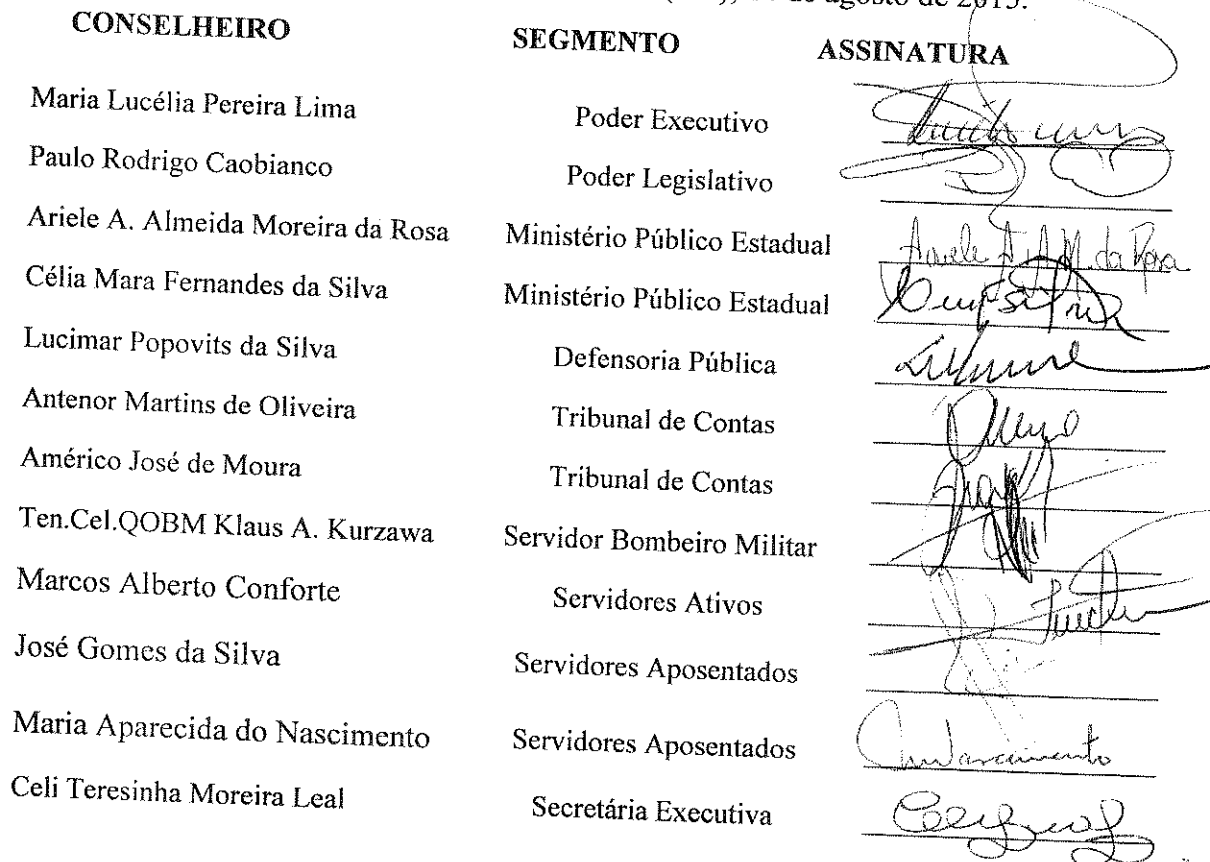 de agosto de 2015.
CONSELHEIRO SEGMENTO ASSINATURA
Maria Lucélia Pereira Lima Poder Executivo
Paulo Rodrigo Caobianco Poder Legislativo
Ariele A. Almeida Moreira da Rosa Ministério Público Estadual Ariele A. A. M. da Rosa
Célia Mara Fernandes da Silva Ministério Público Estadual
Lucimar Popovits da Silva Defensoria Pública
Antenor Martins de Oliveira Tribunal de Contas
Américo José de Moura Tribunal de Contas
Ten.Cel.QOBM Klaus A. Kurzawa Servidor Bombeiro Militar
Marcos Alberto Conforte Servidores Ativos
José Gomes da Silva Servidores Aposentados
Maria Aparecida do Nascimento Servidores Aposentados
Celi Teresinha Moreira Leal Secretária Executiva